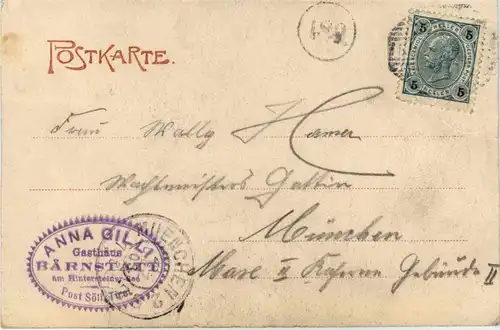 POSTKARTE.
5 HELLER 5
5 HELLER 5
Frau Wally Hamer
Wachtmeisters Gattin
München
Max II Kaserne Gebäude II
MUENCHEN 2
ANNA GILLI
Gasthaus
BÄRNSTATT
am Hintersteiner-See
Post Söll, Tirol